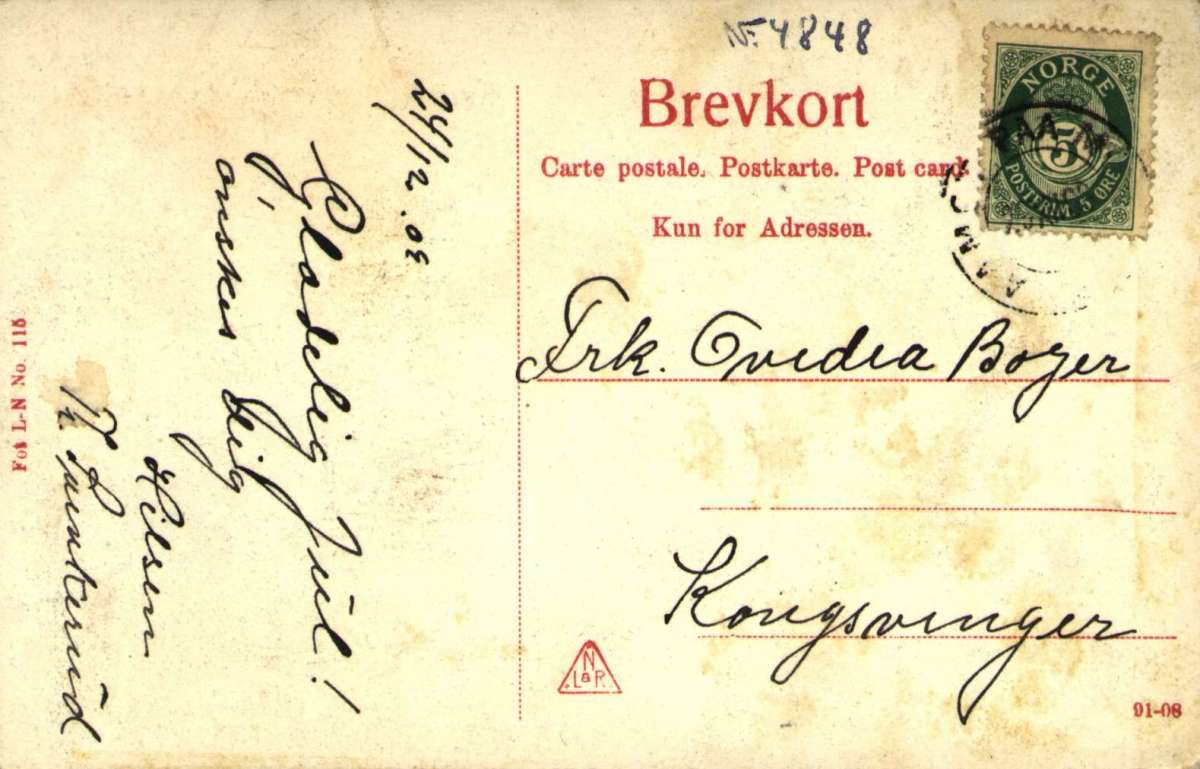 Nr. 4848
Brevkort
Carte postale. Postkarte. Post card.
Kun for Adressen.
NORGE
5
POSTFRIM. 5 ØRE
Frk. Ovedia Boger
Kongsvinger
24/12.08
Glædelig Jul!
ønskes Deig
Hilsen
Fot L-N No. 115
N
L&R
91-08